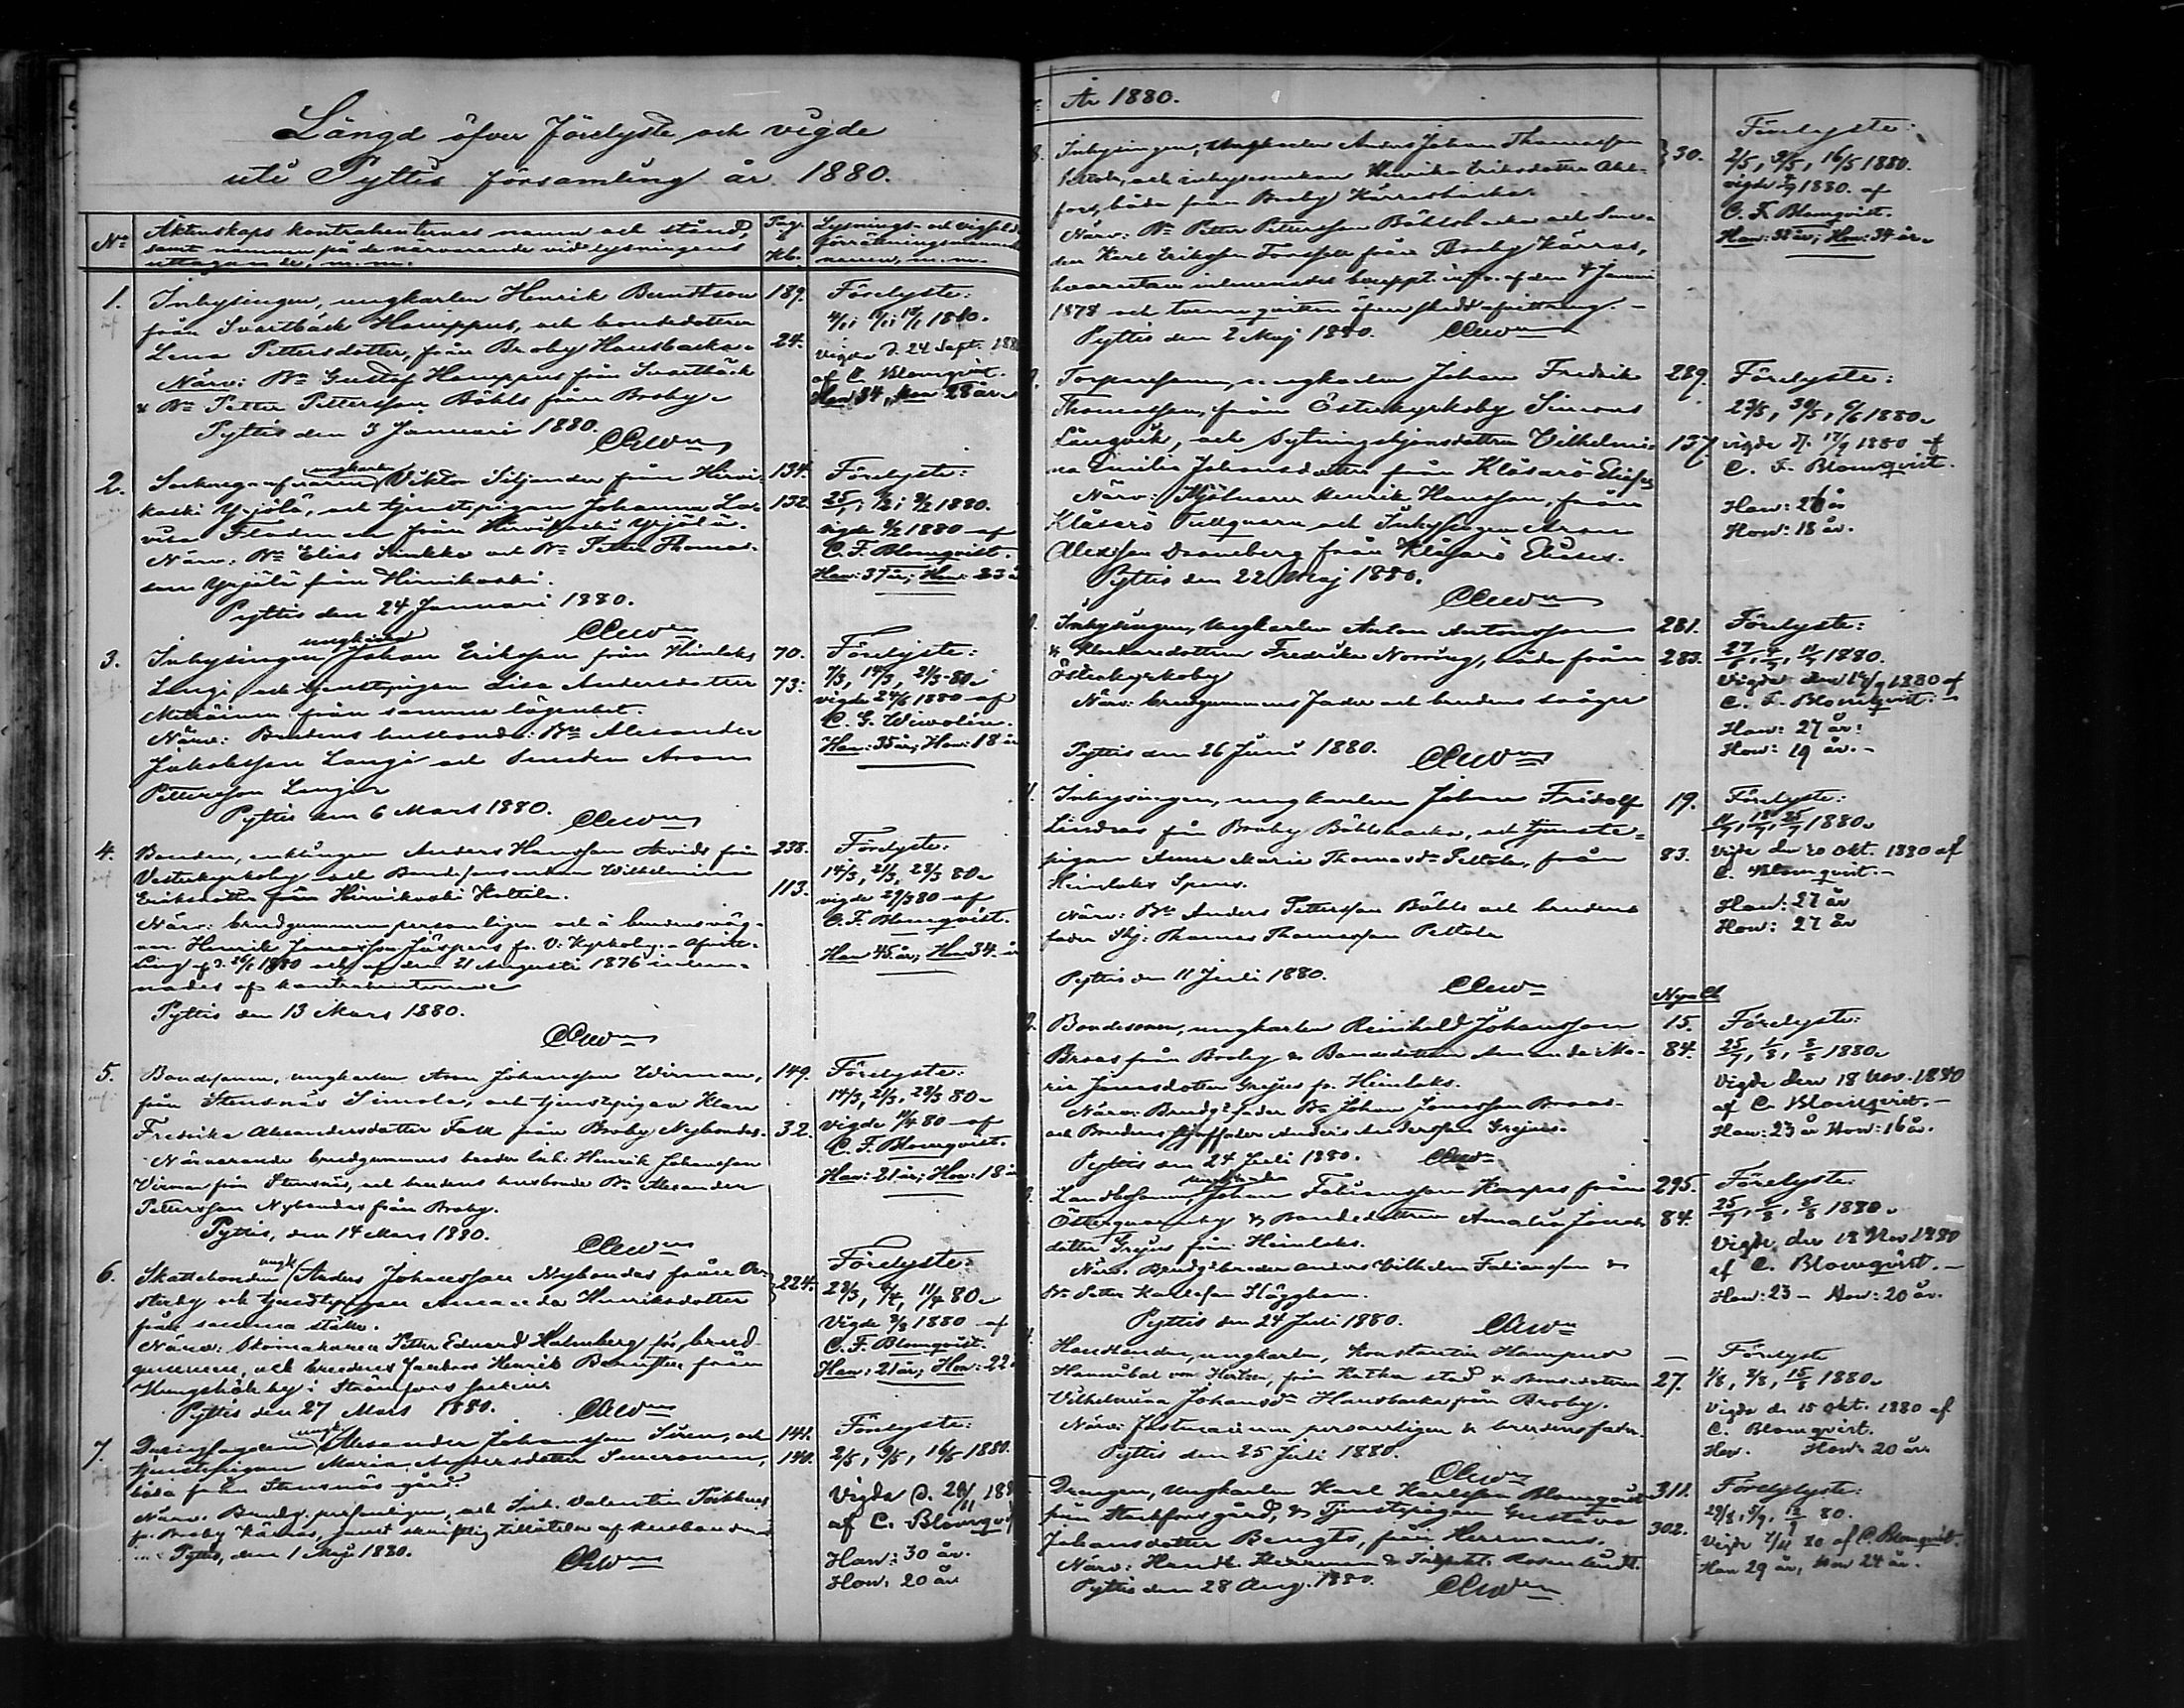 Längd öfver förelyste och vigde
uti Pyttis församling år 1880.
No
Äktenskaps kontrahenternas namn och stånd,
samt namnen på de närvarande vid lysningens
uttagande, m. m.
Pag. Kb.
Lysnings- och vigsel
förrättningsmannens
namn, m. m.
1.
Inhysingen, ungkarlen Henrik Berndtson
från Svartbäck Hamppus, och bondedottren
Lena Pettersdotter, från Broby Hansbacka
Närv: Bn Gustaf Hamppus från Svartbäck
& Bn Petter Pettersson Böhls från Broby
Pyttis den 3 Januari 1880.
189.
24.
Förelyste:
1880.
vigda d. 24 Sept. 188
af C. Blomqvist.
Han 34, Hon 28 år
2.
ungkarlen
Viktor Siljander från Hirvi-
koski Yrjölä, och tjenstepigan Johanna Lo-
visa Flodman från Hirvikoski Yrjölä.
Närv: Bn Elias Sinkko och Bn Petter Thomas-
son Yrjölä från Hirvikoski.
Pyttis den 24 Januari 1880.
134.
132.
Förelyste:
1880.
vigde 1880 af
C. F. Blomqvist.
Han: 37 år; Hon: 23 å
3.
Inhysingen Johan Eriksson från Heinlaks
Longi och tjenstepigan Lisa Andersdotter
från samma lägenhet.
Närv: Brudens husbonde: Bn Alexander
Jakobsson Longi och Sonden Aron
Pettersson Longi
Pyttis den 6 Mars 1880.
70.
73.
Förelyste:
7/3, 14/3, 21/3 80.
vigde 24/6 1880 af
C. G. Wiwolin.
Han: 35 år; Hon: 18 år
4.
Bonden, enklingen Anders Hansson Arvids från
Vesterkyrkoby och Bondjonenkan Wilhelmina
Eriksdotter från Hirvikoski Hottila.
Närv. brudgummen personligen och å brudens väg-
nar Henrik Jonasson Jäspers fr. V. Kyrkoby. Afvitt-
ring af d. 26/1 1880 och af den 21 Augusti 1876 inlem-
nades af kontrahenterne
Pyttis den 13 Mars 1880.
238.
113.
Förelyste:
14/3, 21/3, 28/3 80.
vigde 29/3 80 af
C. F. Blomqvist.
Han 45 år; Hon 34. år
5.
Bondesonen, ungkarlen Aron Johansson Wirman,
från Stensnäs Simola, och tjenstepigan Klara
Fredrika Alexandersdotter Falk från Broby Nybondas.
Närvarande brudgummens broder Inh: Henrik Johansson
Virman från Stensnäs, och brudens husbonde Bn Alexander
Pettersson Nybondas från Broby.
Pyttis, den 14 Mars 1880.
149.
32.
Förelyste:
14/3, 21/3, 28/3 80.
vigde 11/4 80 af
C. F. Blomqvist.
Han: 21 år; Hon: 18 år
6.
Skattebonden (ungk) Anders Johansson Nybondas från Öe-
sterby och tjenstepigan Amanda Henriksdotter
från samma ställe.
Närv: Skomakaren Petter Eduard Holmberg för brud-
gummen, och brudens farbror Henrik Berndtson från
by i Strömfors socken
Pyttis den 27 Mars 1880.
224.
Förelyste:
28/3, 4/4, 11/4 80.
Vigde 1880 af
C. F. Blomqvist.
Han: 21 år; Hon: 22
7.
Alexander Johansson Siren, och
tjenstepigan Maria Andersdotter
båda från Stensnäs gård.
Närv. Brudg. personligen, och Inh. Valentin
fr. Broby Kärras, jemte skriftlig tillåtelse af husbonden
Pyttis, den 1 Maj 1880.
141.
140.
Förelyste:
2/5, 9/5, 16/5 1880.
Vigda d. 28/11 188
af C. Blomqvist
Han: 30 år.
Hon: 20 år
År 1880.
Inhysingen, Ungkarlen Anders Johan Thomasson
och inhysesenkan Henrika Eriksdotter Ahl-
fors, båda från Broby Kärrasbacka.
Närv: Bn Petter Pettersson Böhlsbacka och Son
den Karl Eriksson Forssell från Broby Kärras,
hvarutom inlemnades bouppt. instr. af den 4 Januari
1878 och tvenne qvitton öfver skedd afvittring.
Pyttis den 2 Maj 1880.
30.
Förelyste:
2/5, 9/5, 16/5 1880.
vigde 1880. af
C. F. Blomqvist.
Han: 32 år; Hon: 34 år.
Torparesonen, ungkarlen Johan Fredrik
Thomasson, från Österkyrkoby Simons
Långvik, och Sytningshjonsdottren Vilhelmi-
na Emilia Johansdotter från Klåsarö Eliases
Närv: Mjölnaren Henrik Hansson, från
Klåsarö Tullqvarn och Inhysingen Aron
Alexisson Dranberg från Klåsarö Eliases.
Pyttis den 22 Maj 1880.
289.
137
Förelyste:
23/5, 30/5, 6/6 1880.
vigde d. 17/9 1880 af
C. F. Blomqvist.
Han: 26 år
Hon: 18 år.
Inhysingen, Ungkarlen Anton Antonsson
& Klockaredottren Fredrika Norring, båda från
Österkyrkoby
Närv. brudgummens fader och brudens svåger
Pyttis den 26 Juni 1880.
281.
283.
Förelyste:
27/6, 4/7, 11/7 1880.
Vigde den 1880 af
C. F. Blomqvist.
Han: 27 år:
Hon: 19 år.
Inhysingen, ungkarlen Johan Fridolf
Lindros från Broby Böhlsbacka, och tjenste-
pigan Anna Maria Thomasdr Peltola, från
Heinlaks Spens.
Närv: Bn Anders Pettersson Böhls och brudens
fader Skj: Thomas Thomasson Peltola
Pyttis den 11 Juli 1880.
19.
83.
Förelyste:
11/7, 18/7, 25/7 1880.
Vigde den 20 Okt. 1880 af
C. Blomqvist.
Han: 27 år
Hon: 27 år
Nya Kb
Bondesonen, ungkarlen Reinhold Johansson
Broas från Broby & Bondedottren Amanda Ma-
ria Jonasdotter Grejus fr. Heinlaks.
Närv: Brudgs fader Bn Johan Jonasson Broas
och Brudens styffader Anders Andersson Grejus.
Pyttis den 24 Juli 1880.
15.
84.
Förelyste:
25/7, 1/8, 8/8 1880.
Vigde den 18 Nov. 1880
af C. Blomqvist.
Han: 23 år Hon: 16 år.
Landbosonen, ungkarlen Johan Fabiansson Karpas från
Österqvarnby & Bondedottren Amalia Jonas
dotter Grejus från Heinlaks.
Närv. Brudgs broder Anders Vilhelm Fabiansson &
Bn Petter Karlsson Häggblom.
Pyttis den 24 Juli 1880.
295.
84.
Förelyste:
25/7, 1/8, 8/8 1880.
Vigde den 18 Nov 1880
af C. Blomqvist.
Han: 23 - Hon: 20 år.
Handlanden, ungkarlen, Konstantin Hampus
Hannibal von Hertzen, från Kotka stad & Bondedottren
Vilhelmina Johansdr Hansbacka från Broby.
Närv: Fästmannen personligen & brudens fader.
Pyttis den 25 Juli 1880.
-
27.
Förelyste
1/8, 8/8, 15/8 1880.
Vigda d. 15 Okt. 1880 af
C. Blomqvist.
Han. Hon: 20 år
Drengen, Ungkarlen Karl Karlsson Blomqvist
från Stockfors gård, & Tjenstepigan Gustava
Johansdotter Bengts, från Hermans.
Närv: Handl. Herrman & Inspekt. Rosenlund.
Pyttis den 28 Aug. 1880.
311.
302.
Förelyste:
29/8, 5/9, 12/9 80.
Vigde 7/11 80 af C. Blomqvist.
Han 29 år, Hon 24 år.